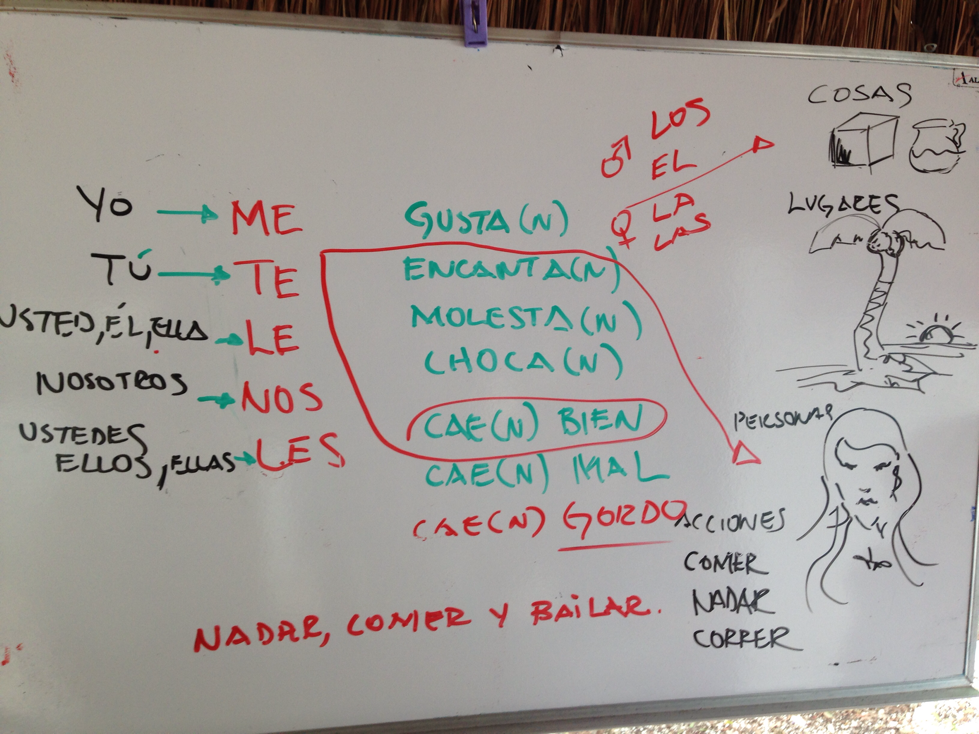 COSAS
♂ LOS
EL
♀ LA
LAS
LUGARES
YO → ME
TÚ → TE
USTED, ÉL, ELLA → LE
NOSOTROS → NOS
USTEDES
ELLOS, ELLAS → LES
GUSTA(N)
ENCANTA(N)
MOLESTA(N)
CHOCA(N)
CAE(N) BIEN
CAE(N) MAL
CAE(N) GORDO
PERSONAS
ACCIONES
COMER
NADAR
CORRER
NADAR, COMER Y BAILAR.